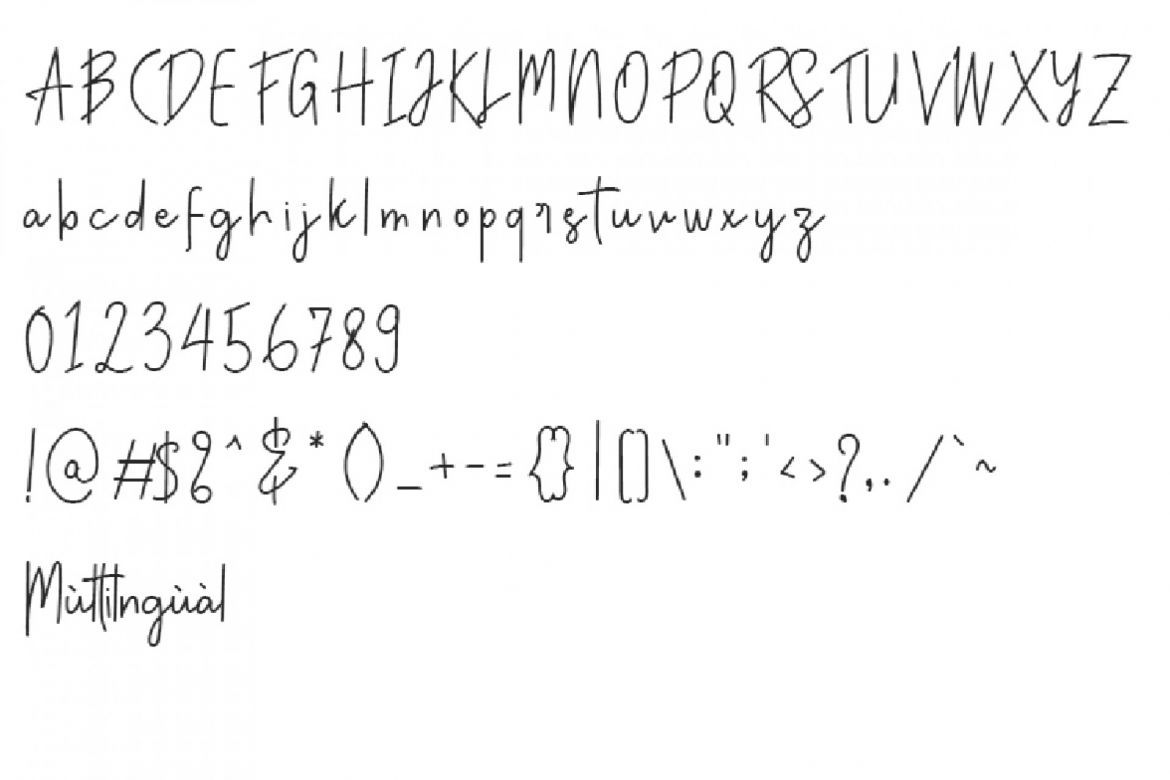 ABCDEFGHIJKLMNOPQRSTUVWXYZ
abcdefghijklmnopqrstuvwxyz
0123456789
!@#$%^&*()_+-={}|[]\:";'<>?,./`~
Mùltitngùàl